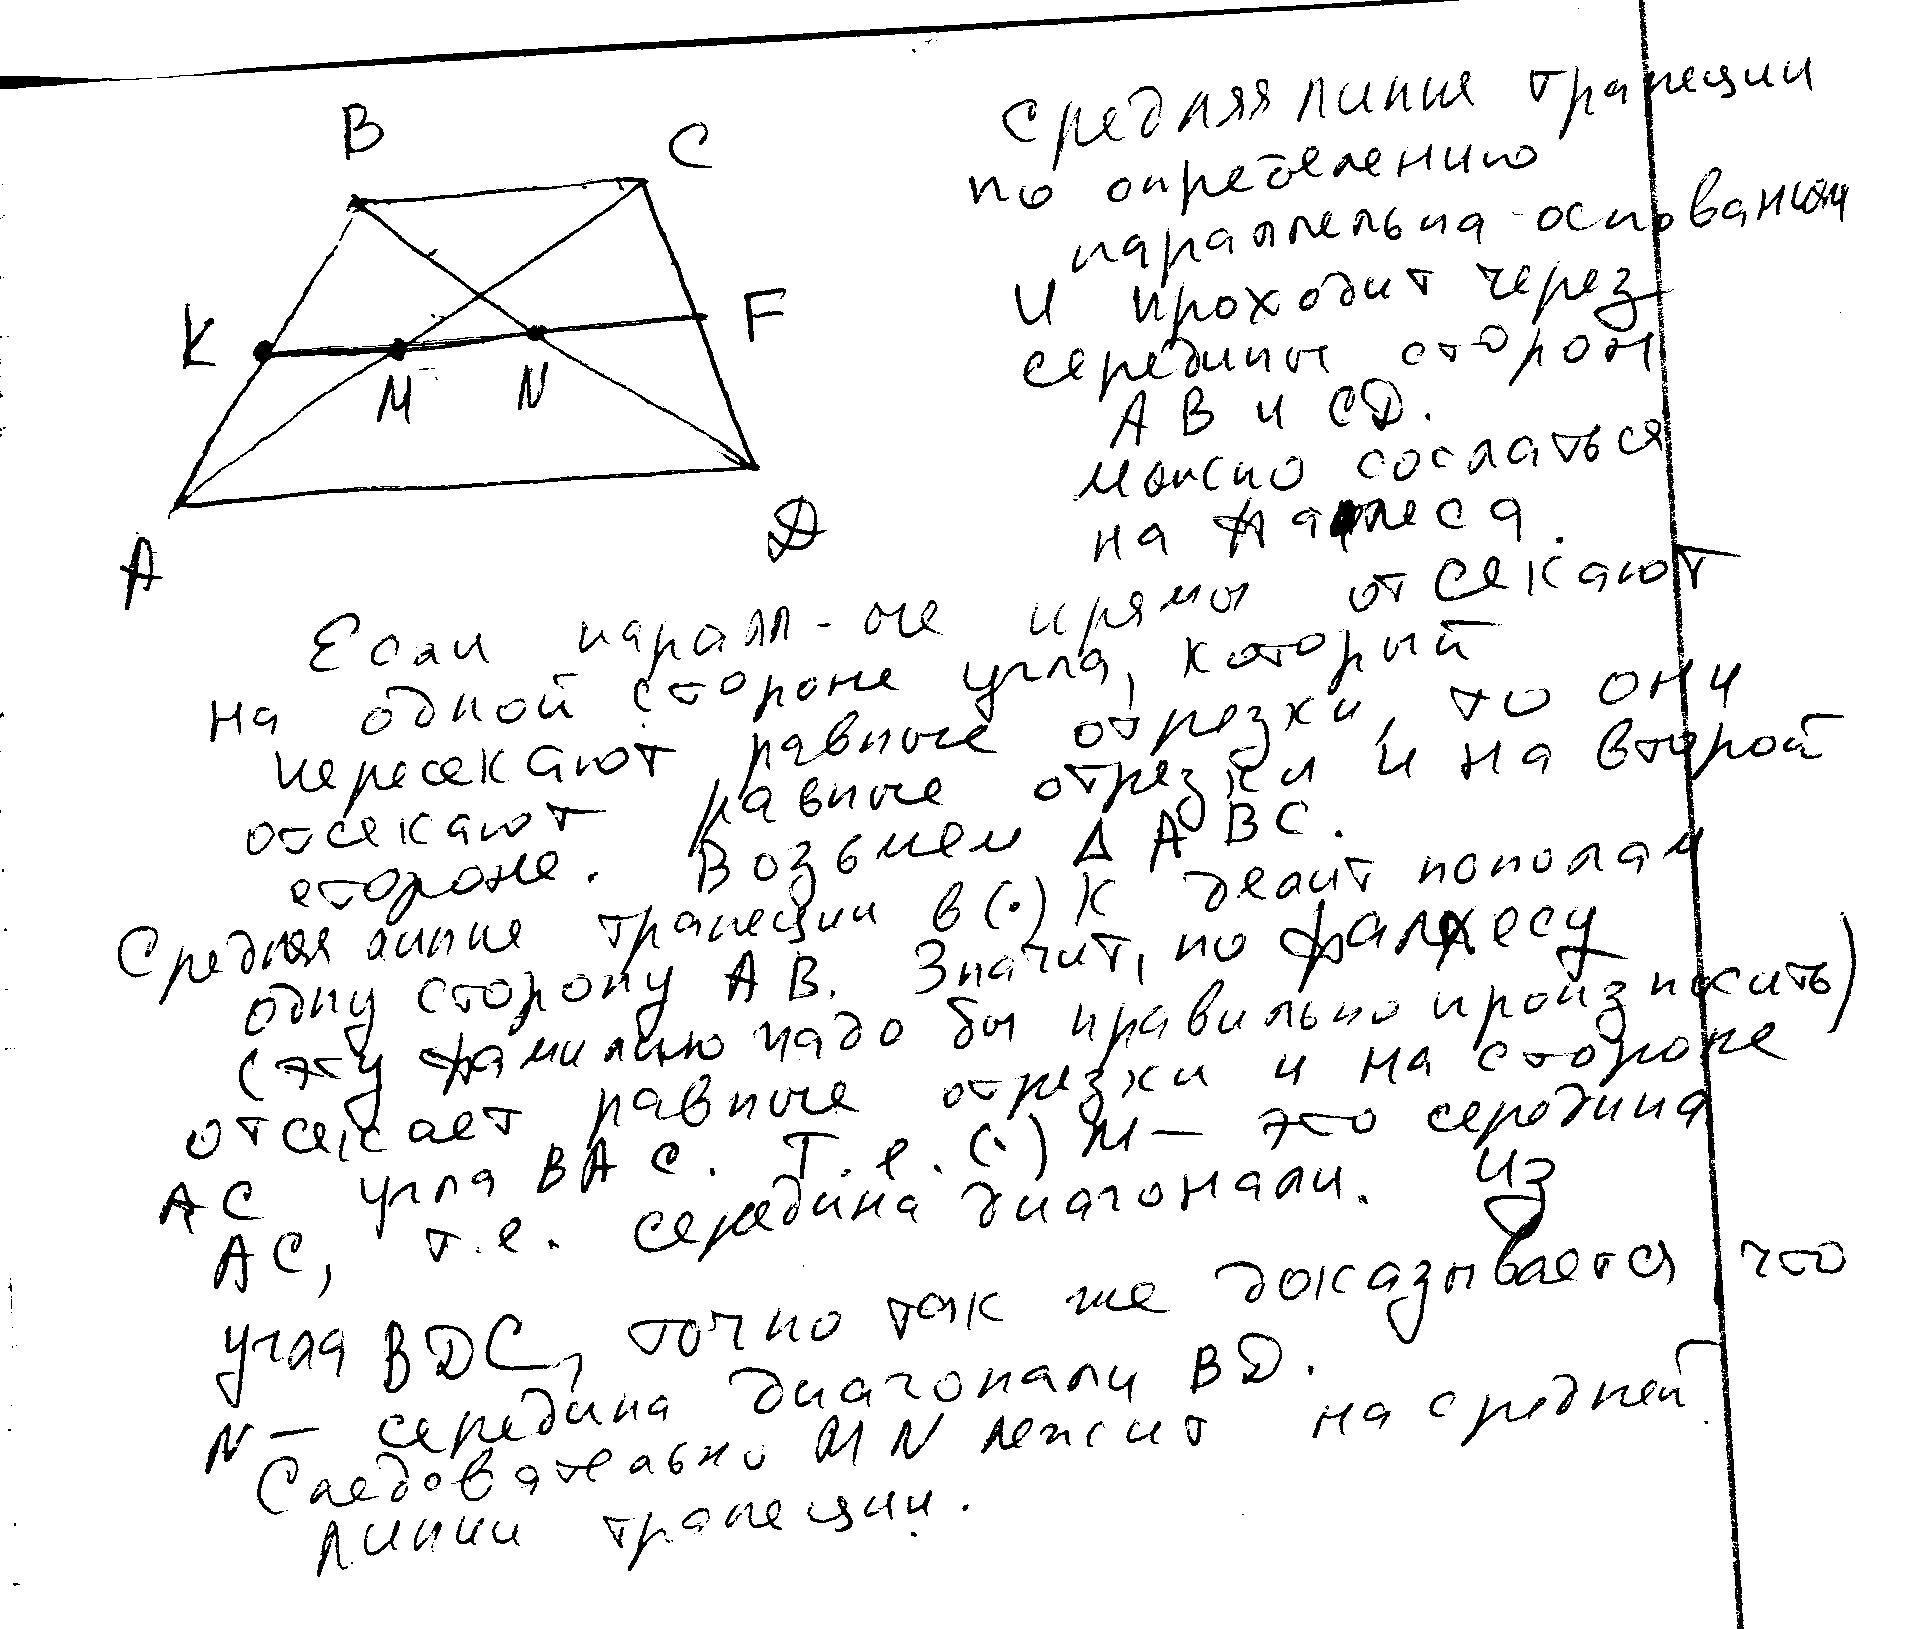 B
C
K
M
N
F
A
D
Средняя линия трапеции
по определению
параллельна основаниям
и проходит через
середины сторон
AB и CD.
можно сослаться
на Фалеса.
Если паралл-ые прямы отсекают
на одной стороне угла, который
пересекают равные отрезки, то они
отсекают равные отрезки и на второй
стороне. Возьмем Δ ABC.
Средняя линия трапеции в (·) K делит пополам
одну сторону AB. Значит, по Фалесу
(эту фамилию надо бы правильно произносить)
отсекает равные отрезки и на стороне
AC угла BAC. Т.е. (·) M — это середина
AC, т.е. середина диагонали. Из
угла BDC, точно так же доказывается что
N — середина диагонали BD.
Следовательно MN лежит на средней
линии трапеции.